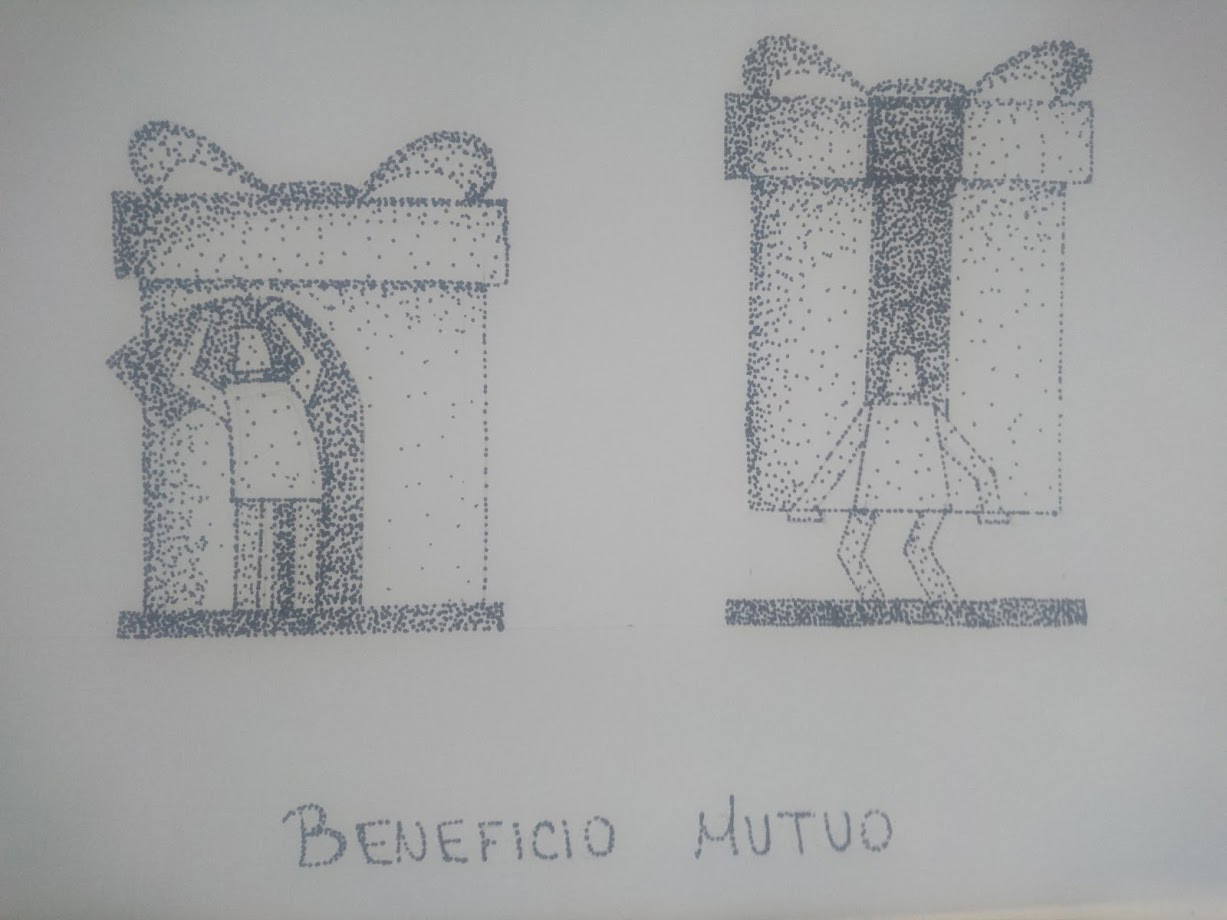 BENEFICIO MUTUO